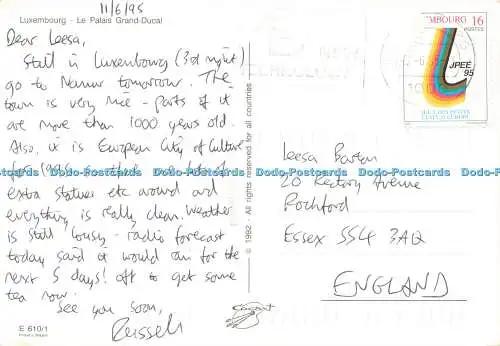 11/6/95
Luxembourg - Le Palais Grand-Ducal
Dear Leesa,
Still in Luxembourg (3rd night)
go to Namur tomorrow. The
town is very nice - parts of it
are more than 1000 years old.
Also, it is European City of Culture
for 1995
extra statues etc around and
everything is really clean. Weather
is still lousy - radio forecast
today said it would rain for the
next 5 days! Off to get some
tea now.
See you soon,
Russell
E 610/1
© 1992 - All rights reserved for all countries
MBOURG 16
POSTES
JPEE
95
JEUX DES PETITS
ETATS D'EUROPE
Leesa Barton
20 Rectory Avenue
Rochford
Essex SS4 3AQ
ENGLAND
Dodo Postcards Dodo Postcards Dodo Postcards Dodo Postcards Dodo Postcards Dodo Postcards